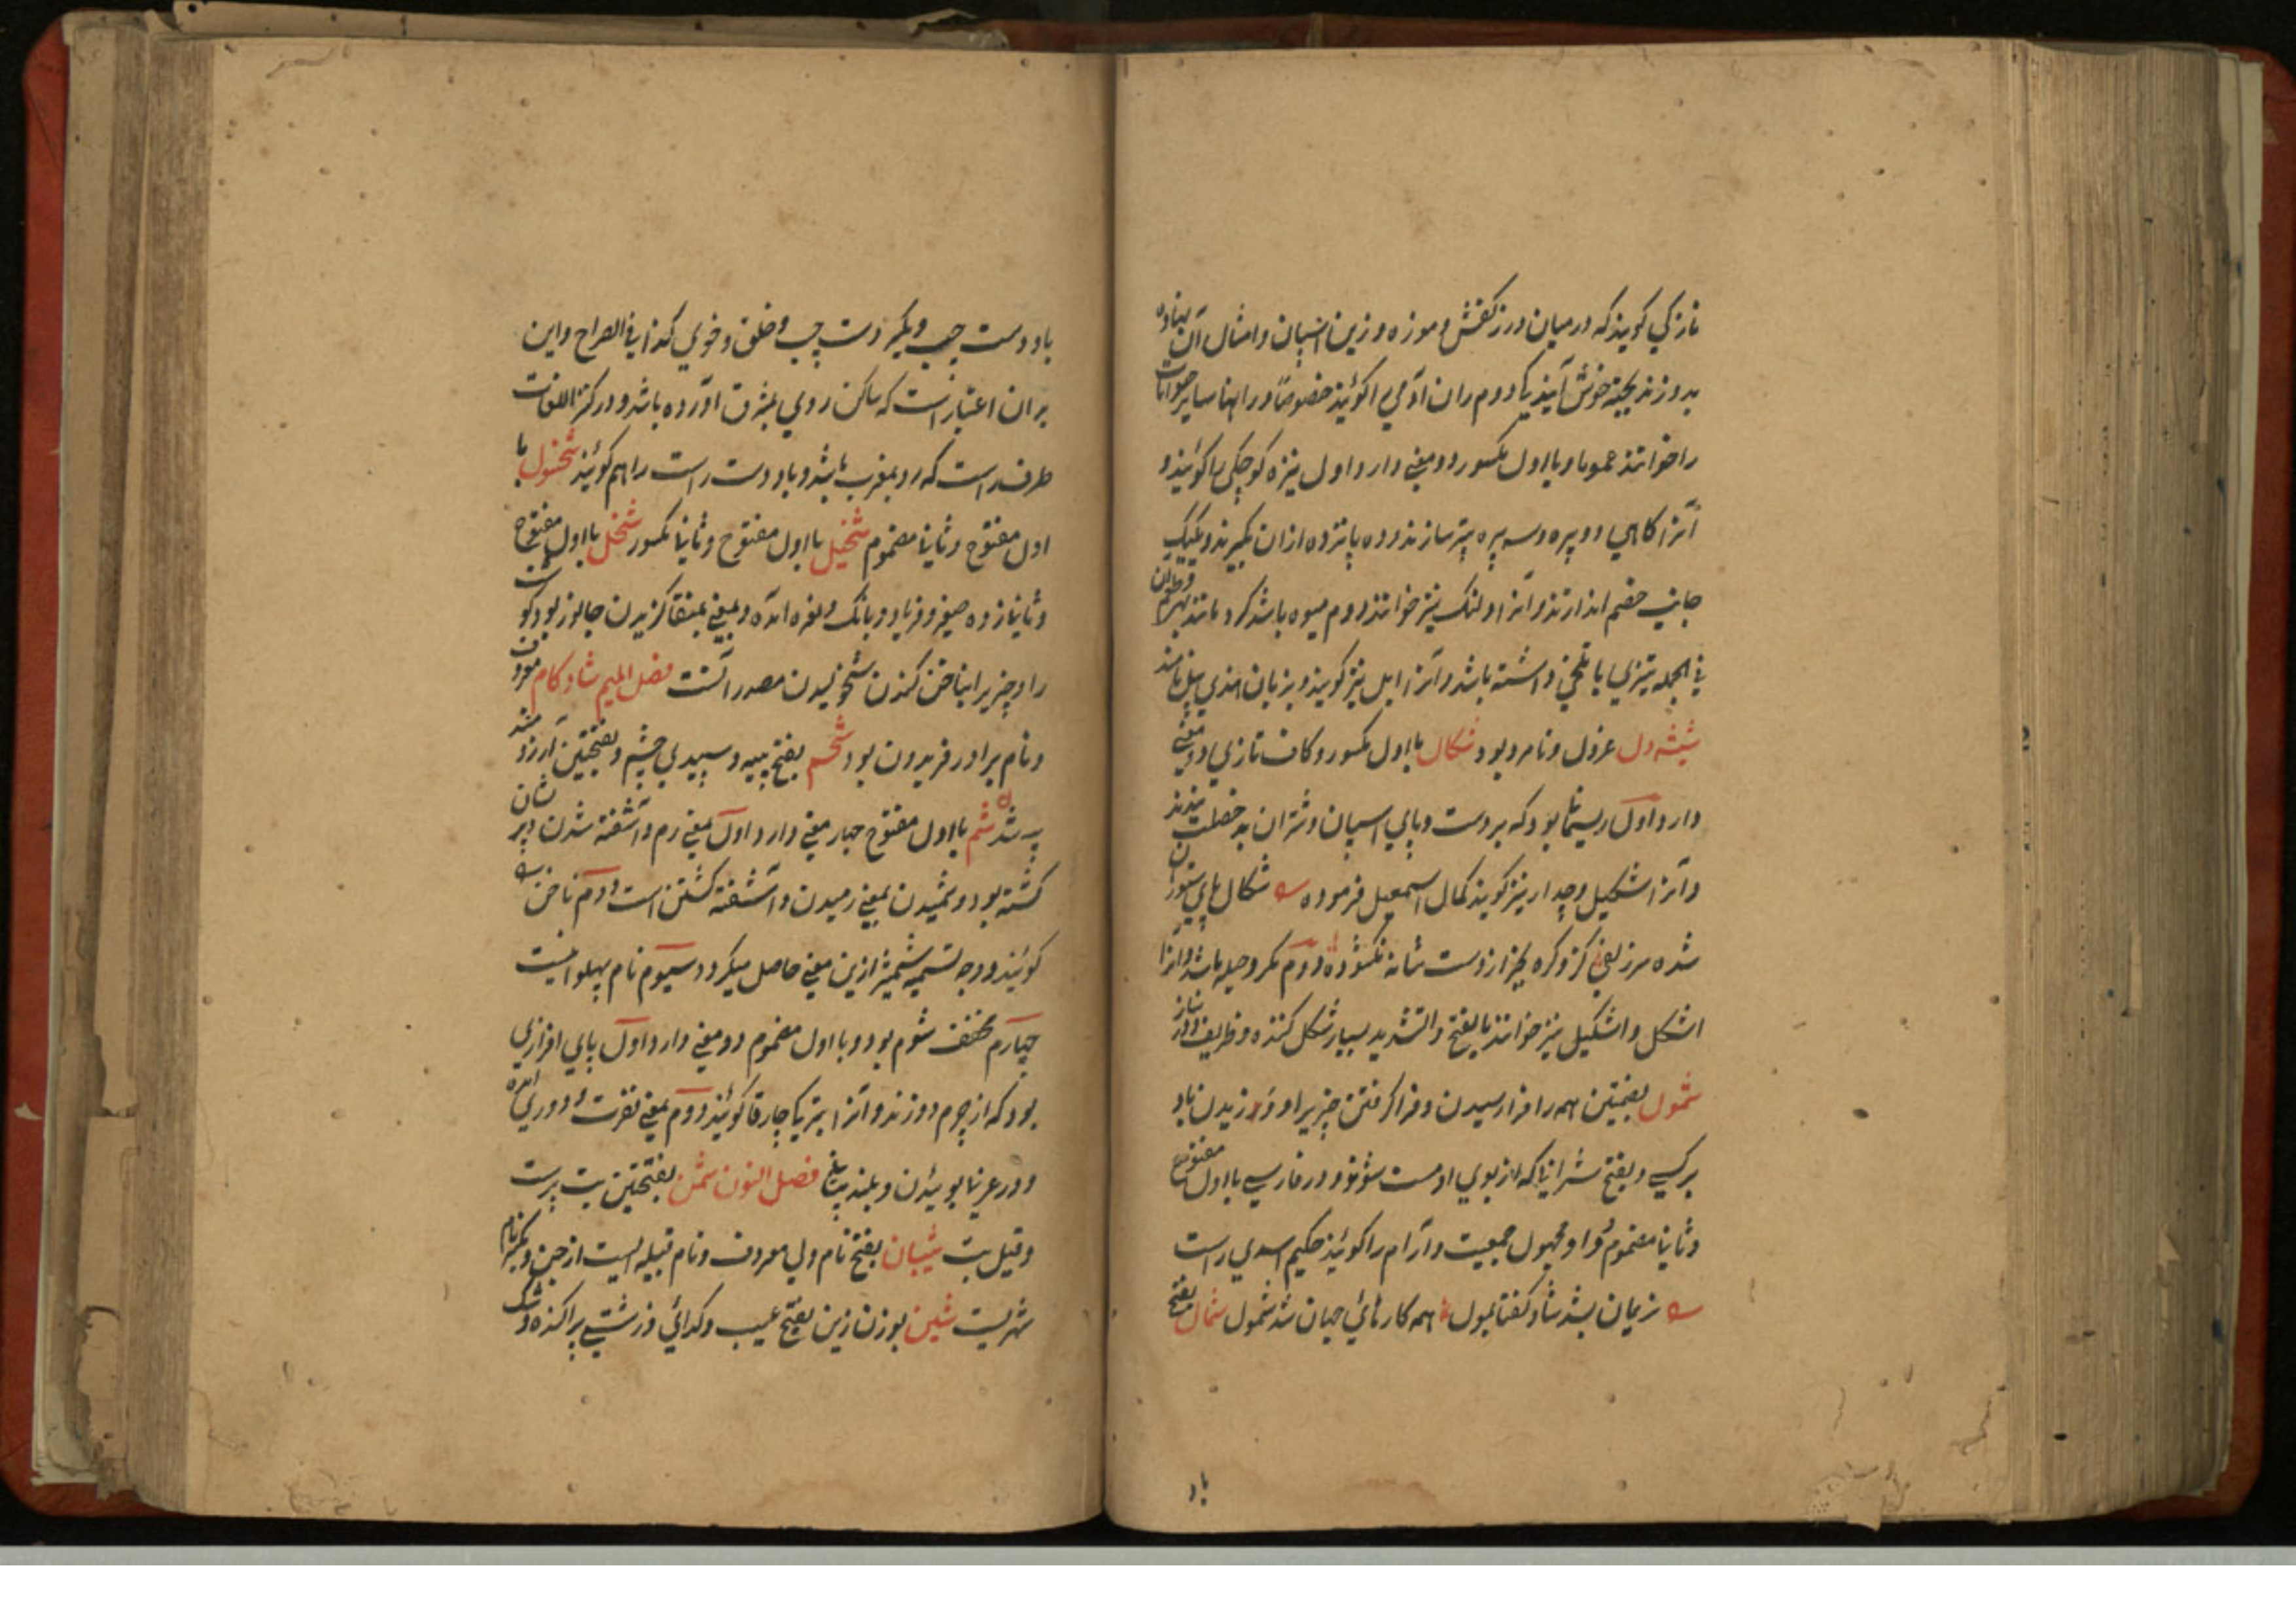 نازکی کویند که در میان درز کفش و موزه و زین اسپان و امثال آن نهاده
بدوزند بجهة خوش آیندیکا دوم ران آدمی را کوئیند خصوصًا و رانها سایر حیوانات
را خوانند عموما و با اول مکسور دو معنی دارد اول نیزه کوچکی را کوئیند و
آنرا کاهی دو پره و سه پره نیز سازند و ده پانزده ازان بکیرند و یکیک
جانب خصم اندازند و آنرا اولنک نیز خوانند دوم میوه باشد کرد مانند به و طعم آن
فی الجمله تیزی با تلخی داشته باشد و آنرا ابل نیز کویند و بزبان هندی بیل نامند
شیشه دل عزول و نامرد بود شکال با اول مکسور و کاف تازی دو معنی
دارد اول ریسمانا بود که بر دست و پای اسپان و شتران بد خصلت بندند
و آنرا اشکیل و چدار نیز کویند کمال اسمعیل فرموده شکال پای ستوران
شده سر زلفی کز و کره بجز از دست شانه نکشوده دوم مکر و حیله باشد و آنرا
اشکل و اشکیل نیز خوانند بالفتح و التشدید بسیار شکل کننده و ظریف و ناز
شمول بضمتین همه را فرا رسیدن و فرا کرفتن چیزیرا و وزیدن باد
بر کسی و بفتح شرابیا که از بوی او مست شوند و در فارسی با اول مفتوح
و ثانیا مضموم و واو مجهول جمعیت و آرام را کوئیند حکیم اسدی راست
نریمان بشد شاد کفتا بمول همه کارهائی جهان شد شمول شمال بفتح
باد
باد دست چپ و بکیر دست چپ و خلق و خوی کذا فی الصراح و این
بران اعتبار است که ساکن روی بمشرق آورده باشد و در کنز اللغات
طرف راست که رو بمغرب باشد و باد دست راست را هم کوئیند شخول با
اول مفتوح و ثانیا مضموم شخیل با اول مفتوح و ثانیا مکسور شخل با اول مفتوح
و ثانیا زده صیفر و فریاد و بانک و نعره آمده و بمعنی بمنقار کزیدن جانور بود کوشت
را و چیزیرا بناخن کندن شخولیدن مصدر آنست فصل المیم شاد کام معروف
و نام برادر فریدون بود شحم بفتح پیه و سپیدی چشم و بفتحتین آرزومند
پیه شدن شم با اول مفتوح چهار معنی دارد اول بمعنی رم و آشفته شدن و پریشان
کشته بود و شمیدن بمعنی رمیدن و آشفته کشتن است دوم ناخن را
کوئیند و وجه تسمیه شمشیر ازین معنی حاصل میکردد سیوم نام پهلوانیست
چهارم مخفف شوم بود و با اول مضموم دو معنی دارد اول پای افزاری
بود که از چرم دوزند و آنرا بترکیا چارقا کوئیند دوم بمعنی نفرت و دوری آمده
و در عربیا بوئیدن و بلند بینی فصل النون شمن بفتحتین بت پرست
و قیل بت شیبان بفتح نام ولی معروف و نام قبیله ایست از جن و بکسر نام
شهریست شین بوزن زین بفتح عیب و کدائی و زشتی پراکنده